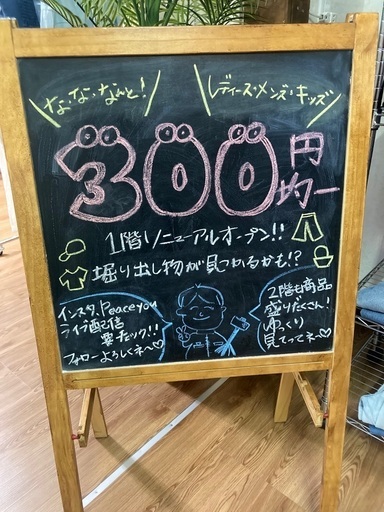 な・な・なんと!
レディース・メンズ・キッズ
300円均一
1階リニューアルオープン!!
掘り出し物が見つかるかも!?
インスタ、Peace you
ライブ配信
要チェック!!
フォローよろしくネ〜♡
2階も商品
盛りだくさん!
ゆっくり
見てってネ〜♡